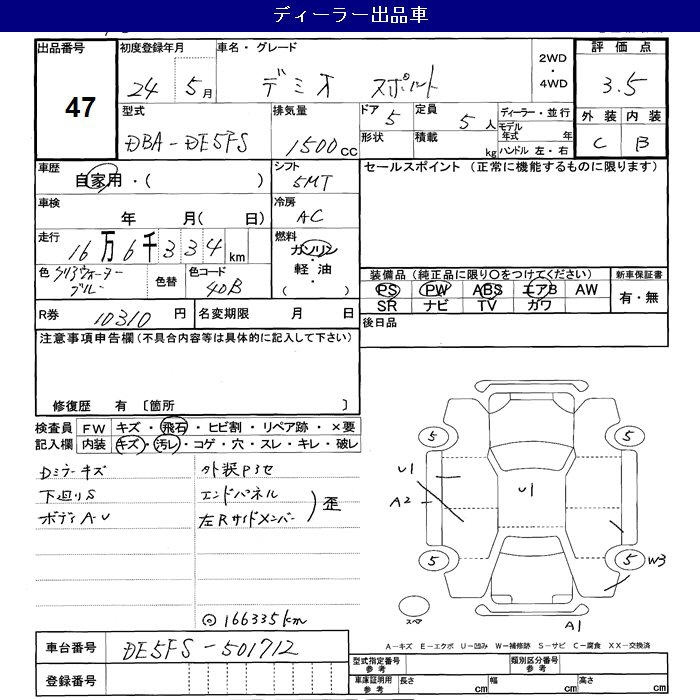 ディーラー出品車
出品番号 初度登録年月 車名・グレード 2WD ・ 4WD 評価点
47 24 5月 デミオ スポルト 3.5
型式 排気量 ドア 5 定員 5人 ディーラー・並行 外装 内装
DBA-DE5FS 1500cc 形状 積載 kg モデル年式 年 C B
ハンドル 左・右
車歴 シフト セールスポイント (正常に機能するものに限ります)
自家用・( ) 5MT
車検 冷房
年 月( 日) AC
走行 燃料
16万6千334km ガソリン・軽油・( )
色 クリアウォーターブルー 色替 色コード 40B
装備品 (純正品に限り○をつけてください) 新車保証書
PS PW ABS エアB AW 有・無
SR ナビ TV ガワ
R券 10310円 名変期限 月 日 後日品
注意事項申告欄 (不具合内容等は具体的に記入して下さい)
修復歴 有 〔箇所 〕
検査員 FW キズ・飛石・ヒビ割・リペア跡・×要
記入欄 内装 キズ・汚レ・コゲ・穴・スレ・キレ・破レ
Dミラーキズ 外装Pスセ
下廻りS エンドパネル
ボディA-U 左Rサイドメンバー 歪
5 5
U1 U1
A2
5 5 W3
スペア A1
◎166335km
A-キズ E-エクボ U-凹み W-補修跡 S-サビ C-腐食 XX-交換済
車台番号 DE5FS-501712
登録番号
型式指定番号 参考 類別区分番号 参考
車庫証明用 参考 長さ cm 幅 cm 高さ cm